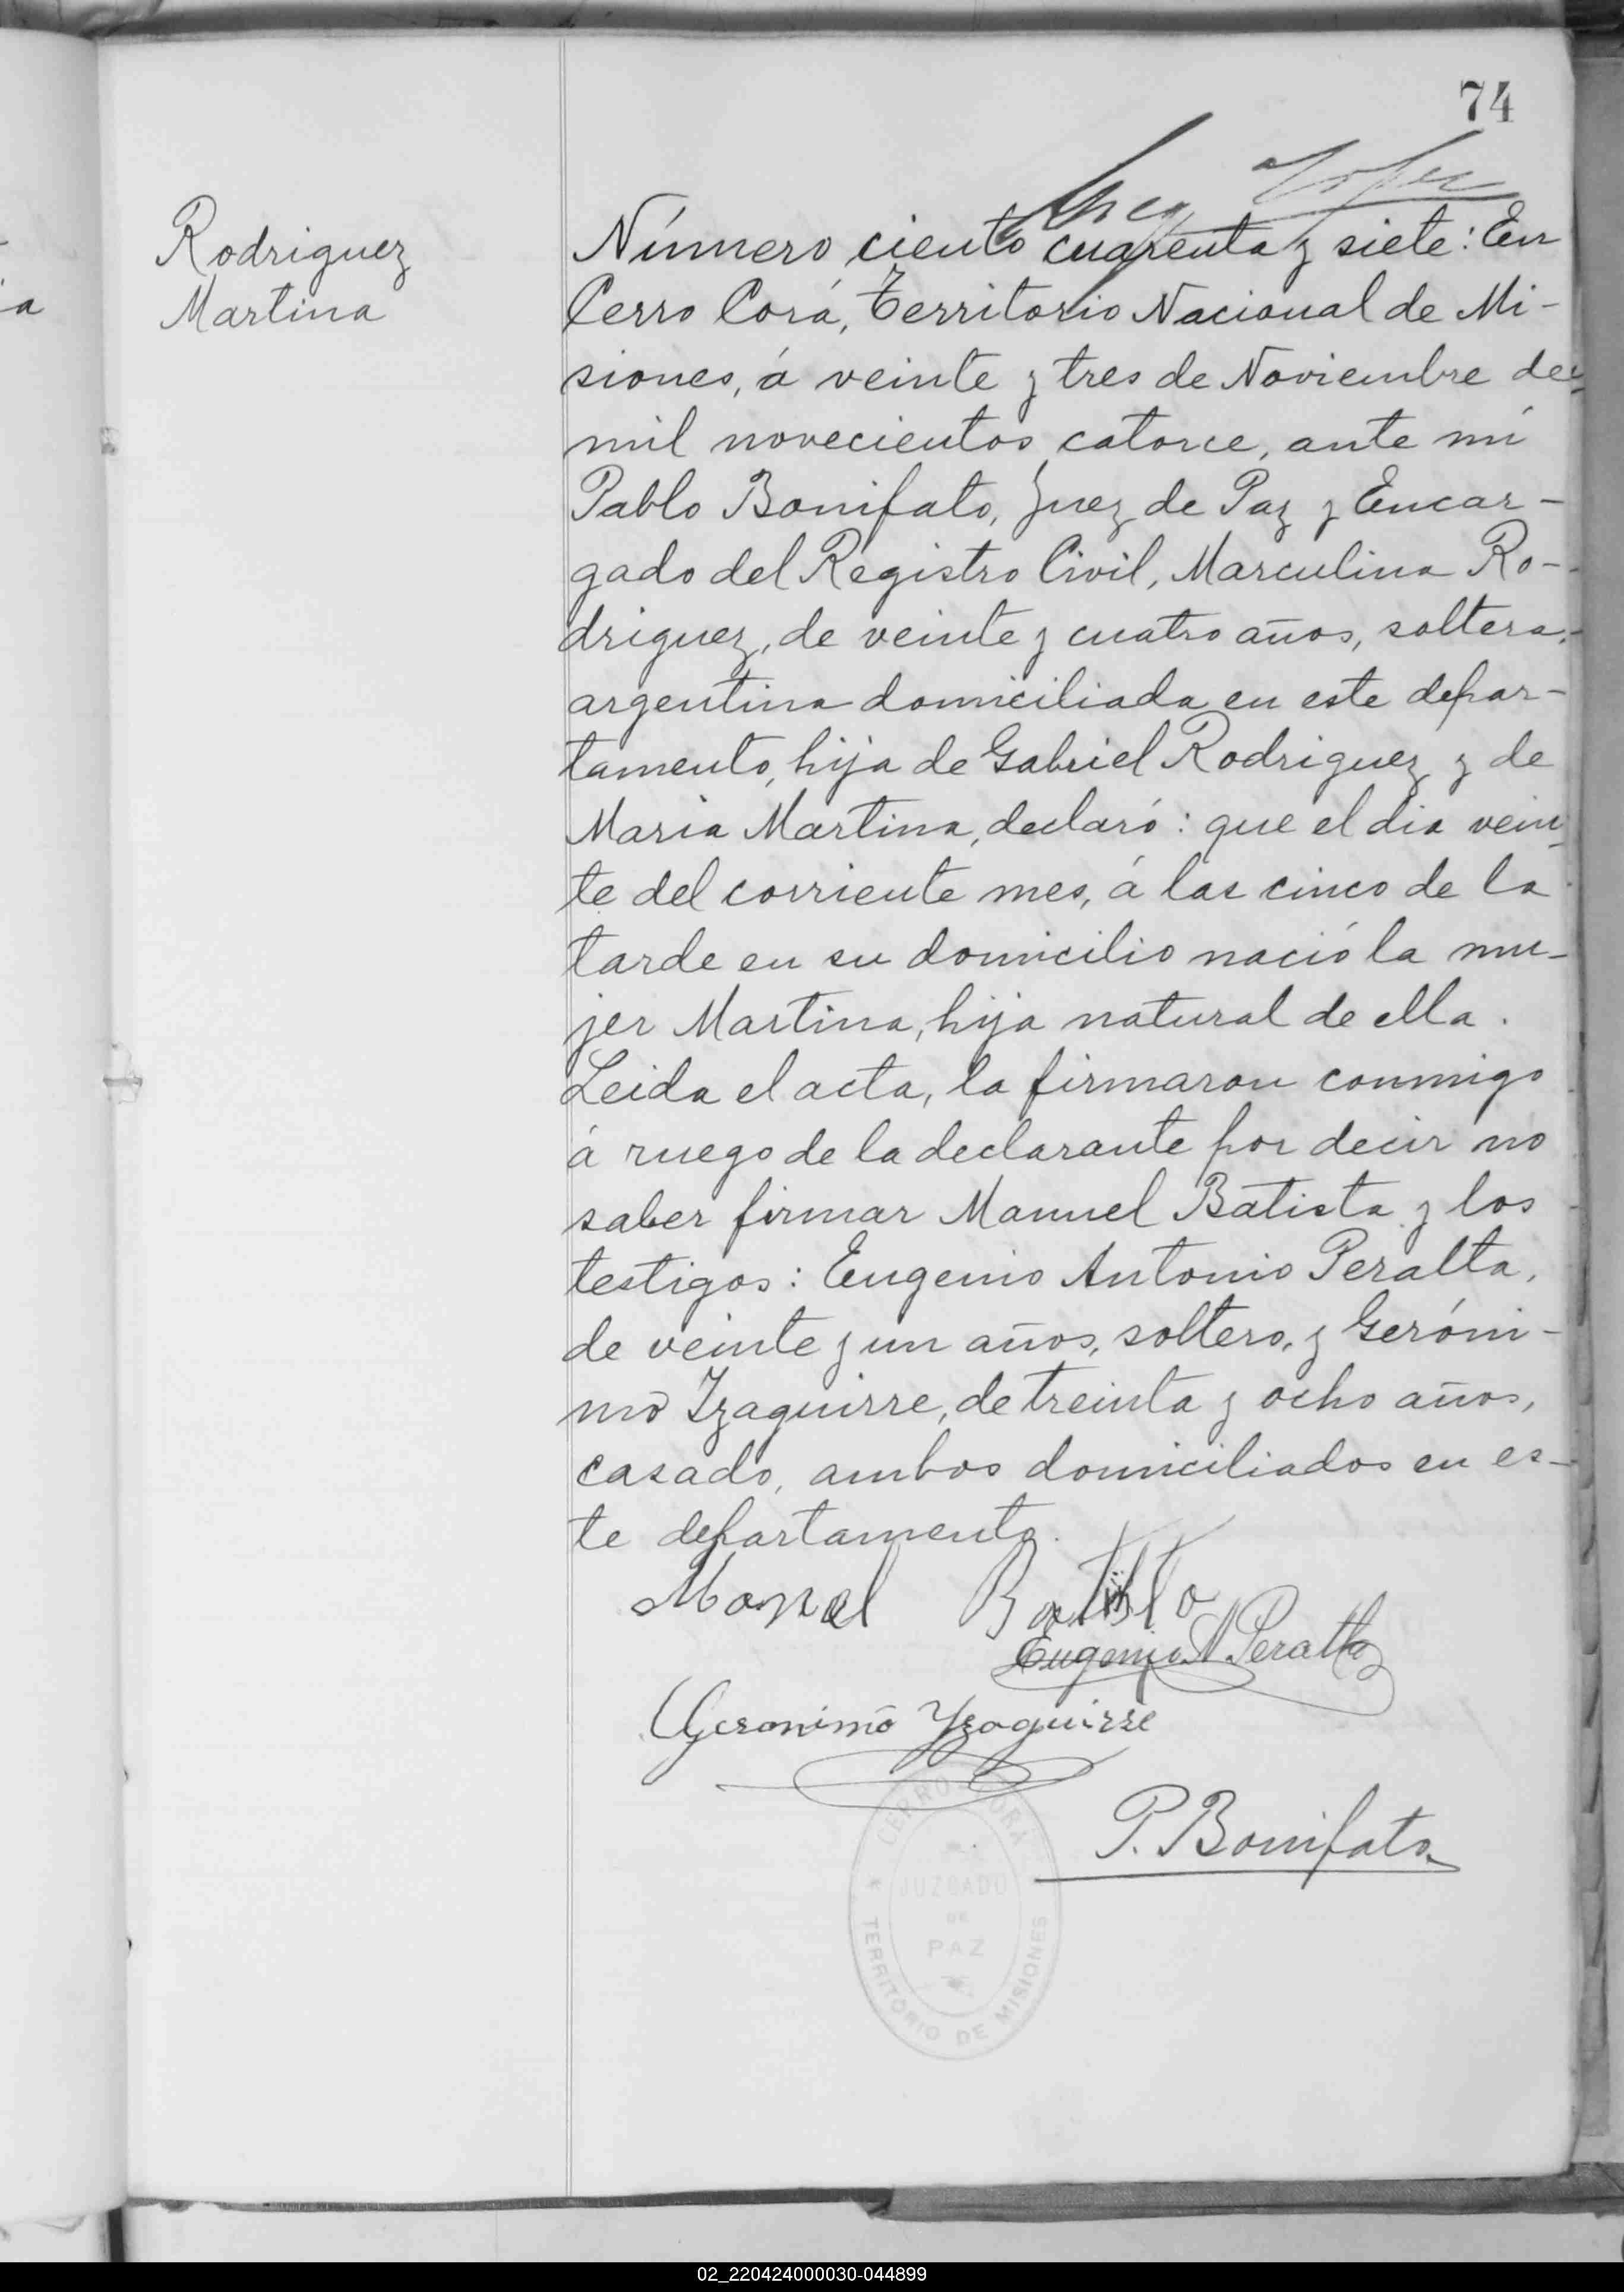 74
Rodriguez
Martina
Número ciento cuarenta y siete: En
Cerro Corá, Territorio Nacional de Mi-
siones, á veinte y tres de Noviembre de
mil novecientos catorce, ante mí
Pablo Bonifato, Juez de Paz y Encar-
gado del Registro Civil, Marculina Ro-
driguez, de veinte y cuatro años, soltera,
argentina domiciliada en este depar-
tamento, hija de Gabriel Rodriguez y de
Maria Martina, declaró: que el dia vein
te del corriente mes, á las cinco de la
tarde en su domicilio nació la mu-
jer Martina, hija natural de ella.
Leida el acta, la firmaron conmigo
á ruego de la declarante por decir no
saber firmar Manuel Batista y los
testigos: Eugenio Antonio Peralta,
de veinte y un años, soltero, y Geróni-
mo Izaguirre, de treinta y ocho años,
casado, ambos domiciliados en es-
te departamento.
Manel Batisto
Eugenio A. Peralta
Geronimo Yzaguirre
P. Bonifato
CERRO CORA
JUZGADO
DE
PAZ
TERRITORIO DE MISIONES
a
02_220424000030-044899